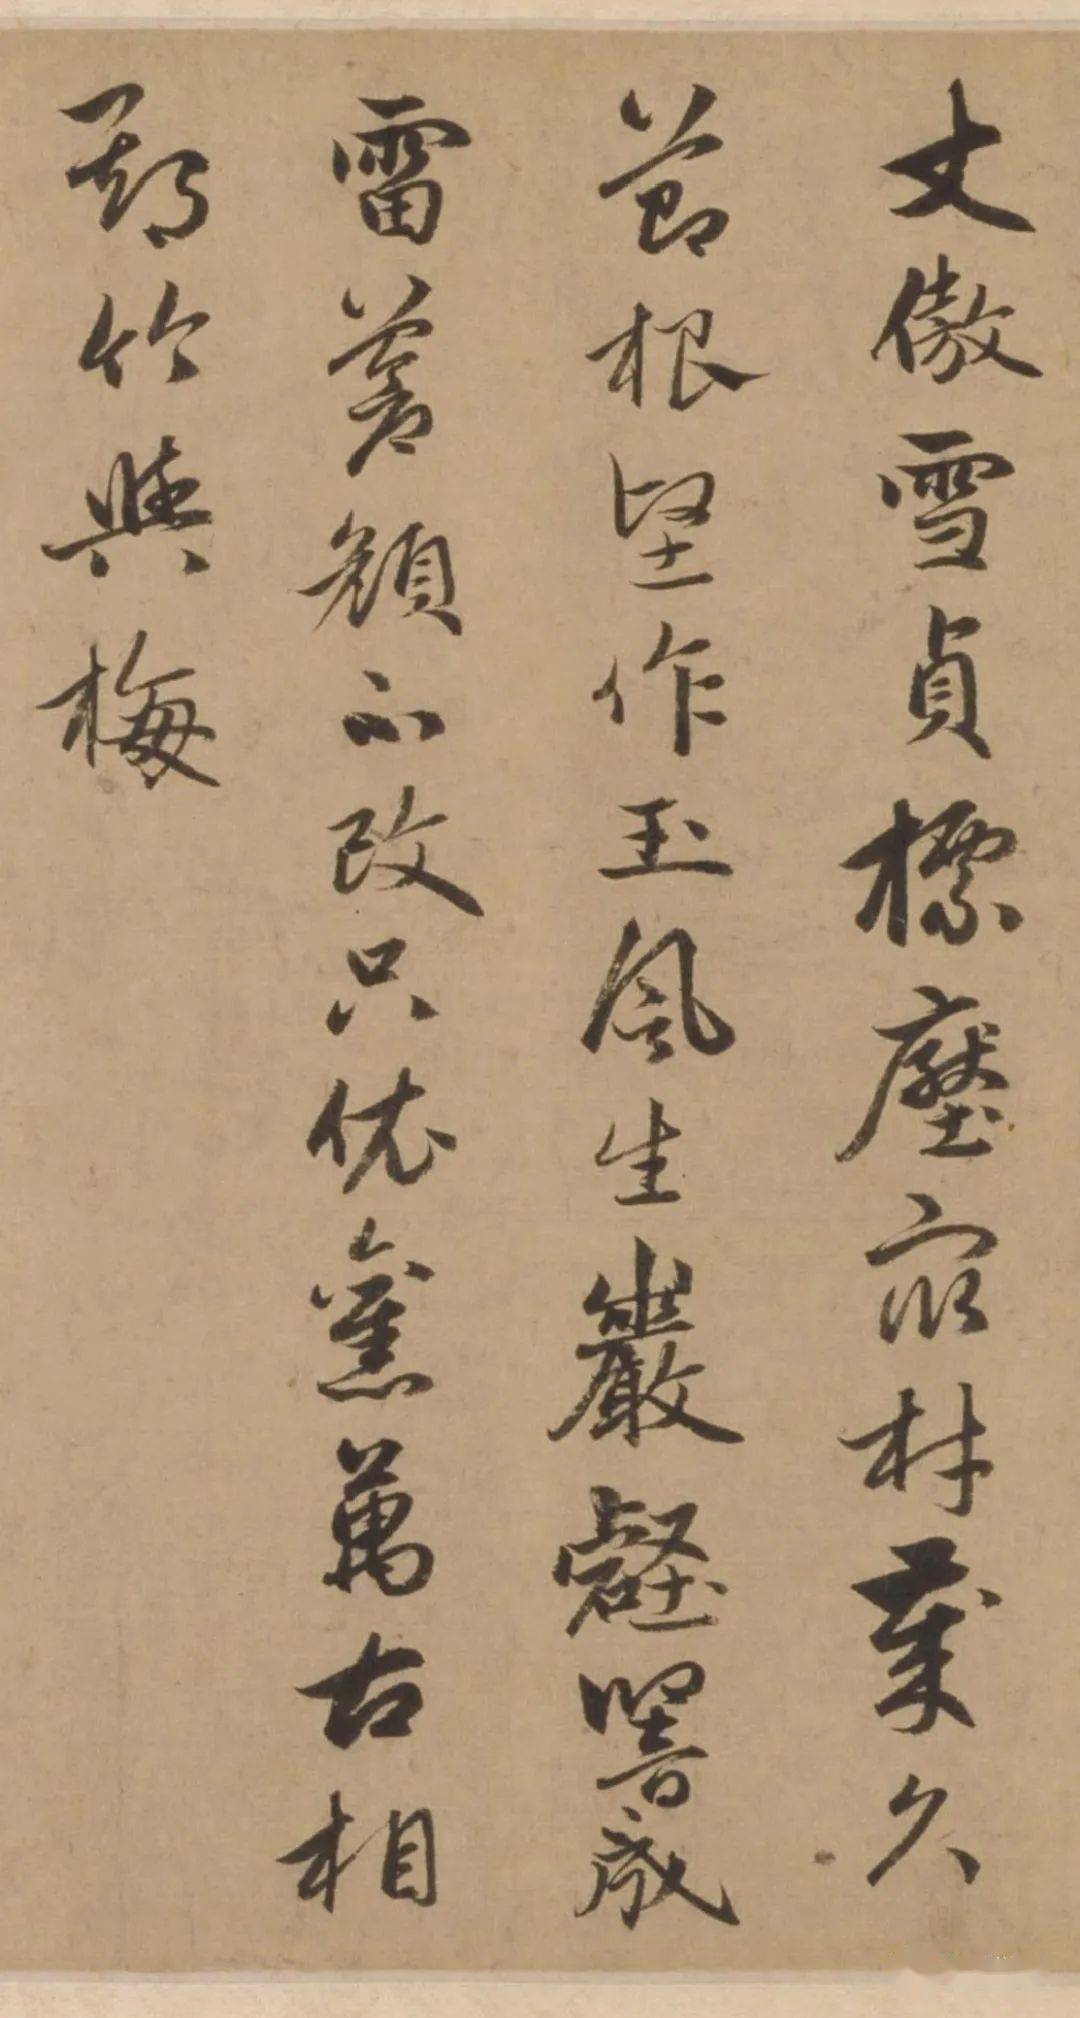 丈傲雪貞標壓衆材歲久
節根堅作玉風生巖壑響成
雷蒼顏不改只依舊萬古相
期竹與梅